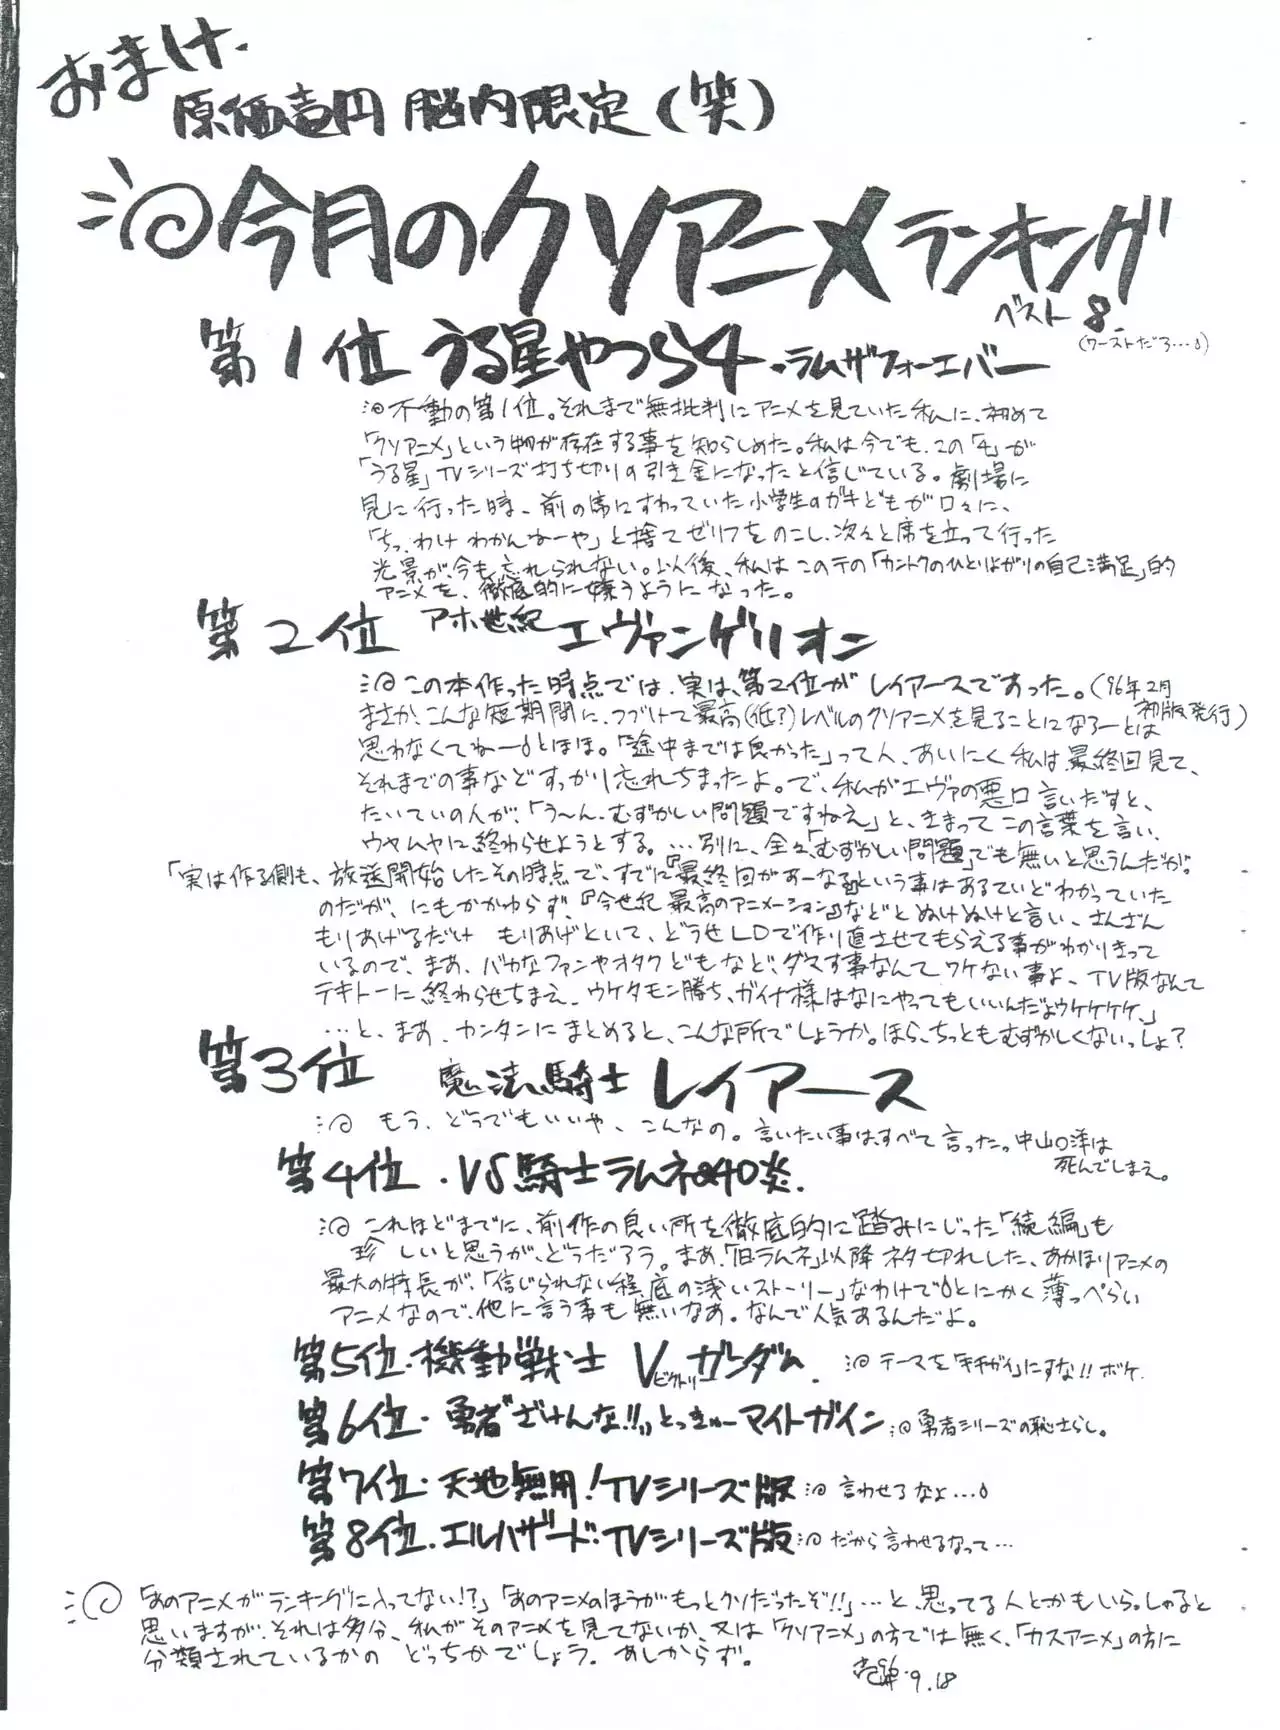 おまけ.
原価壱円 脳内限定(笑)
今月のクソアニメランキング
ベスト8.
(ワーストだろ…)
第1位 うる星やつら4・ラムザフォーエバー
不動の第1位。それまで無批判にアニメを見ていた私に、初めて
「クソアニメ」という物が存在する事を知らしめた。私は今でも、この「4」が
「うる星」TVシリーズ打ち切りの引き金になったと信じている。劇場に
見に行った時、前の席にすわっていた小学生のガキどもが口々に、
「ちっ、わけわかんねーや」と捨てゼリフをのこし、次々と席を立って行った
光景が、今も忘れられない。以後、私はこの手の「カントクのひとりよがりの自己満足」的
アニメを、徹底的に嫌うようになった。
第2位 アホ世紀エヴァンゲリオン
この本作った時点では、実は、第2位がレイアースであった。(96年2月
初版発行)
まさか、こんな短期間に、つづけて最高(低?)レベルのクソアニメを見ることになろーとは
思わなくてねーとほほ。「途中までは良かった」って人、あいにく私は最終回見て、
それまでの事などすっかり忘れちまったよ。で、私がエヴァの悪口言いだすと、
たいていの人が、「う〜ん、むずかしい問題ですねえ」と、きまってこの言葉を言い、
ウヤムヤに終わらせようとする。…別に、全々「むずかしい問題」でも無いと思うんだが。
「実は作る側も、放送開始したその時点で、すでに『最終回があーなる』という事はあるていどわかっていた
のだが、にもかかわらず、『今世紀最高のアニメーション』などとぬけぬけと言い、さんざん
もりあげるだけ もりあげといて、どうせLDで作り直させてもらえる事がわかりきって
いるので、まあ、バカなファンやオタクどもなど、ダマす事なんてワケない事よ、TV版なんて
テキトーに終わらせちまえ、ウケタモン勝ち、ガイナ様はなにやってもいいんだようケケケケ、」
…と、まあ、カンタンにまとめると、こんな所でしょうか。ほら、ちっともむずかしくないっしょ?
第3位 魔法騎士レイアース
もう、どうでもいいや、こんなの。言いたい事は、すべて言った。中山〇洋は
死んでしまえ。
第4位・VS騎士ラムネ&40炎.
これほどまでに、前作の良い所を徹底的に踏みにじった「続編」も
珍しいと思うが、どうだろう。まあ、「旧ラムネ」以降ネタ切れした、あかほりアニメの
最大の特長が、「信じられない程、底の浅いストーリー」なわけで、とにかく薄っぺらい
アニメなので、他に言う事も無いなあ。なんで人気あるんだよ。
第5位・機動戦士Vガンダム. テーマを「キチガイ」にすな!!ボケ.
ビクトリー
第6位・勇者"ざけんな!!"とっきゅーマイトガイン 勇者シリーズの恥さらし。
第7位・天地無用!TVシリーズ版 言わせるなよ…
第8位・エルハザード・TVシリーズ版 だから言わせるなって…
「あのアニメがランキングに入ってない!?」「あのアニメのほうがもっとクソだったぞ!!」…と、思ってる人とかもいらっしゃると
思いますが、それは多分、私がそのアニメを見てないか、又は「クソアニメ」の方では無く、「カスアニメ」の方に
分類されているかの どっちかでしょう。あしからず。
96.9.18